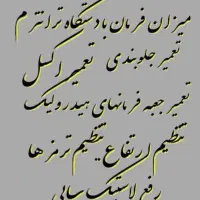 میزان فرمان با دستگاه ترانتزم
تعمیر جلوبندی تعمیر اکسل
تعمیر جعبه فرمانهای هیدرولیک
تنظیم ارتفاع تنظیم ترمزها
رفع لاستیک سابی